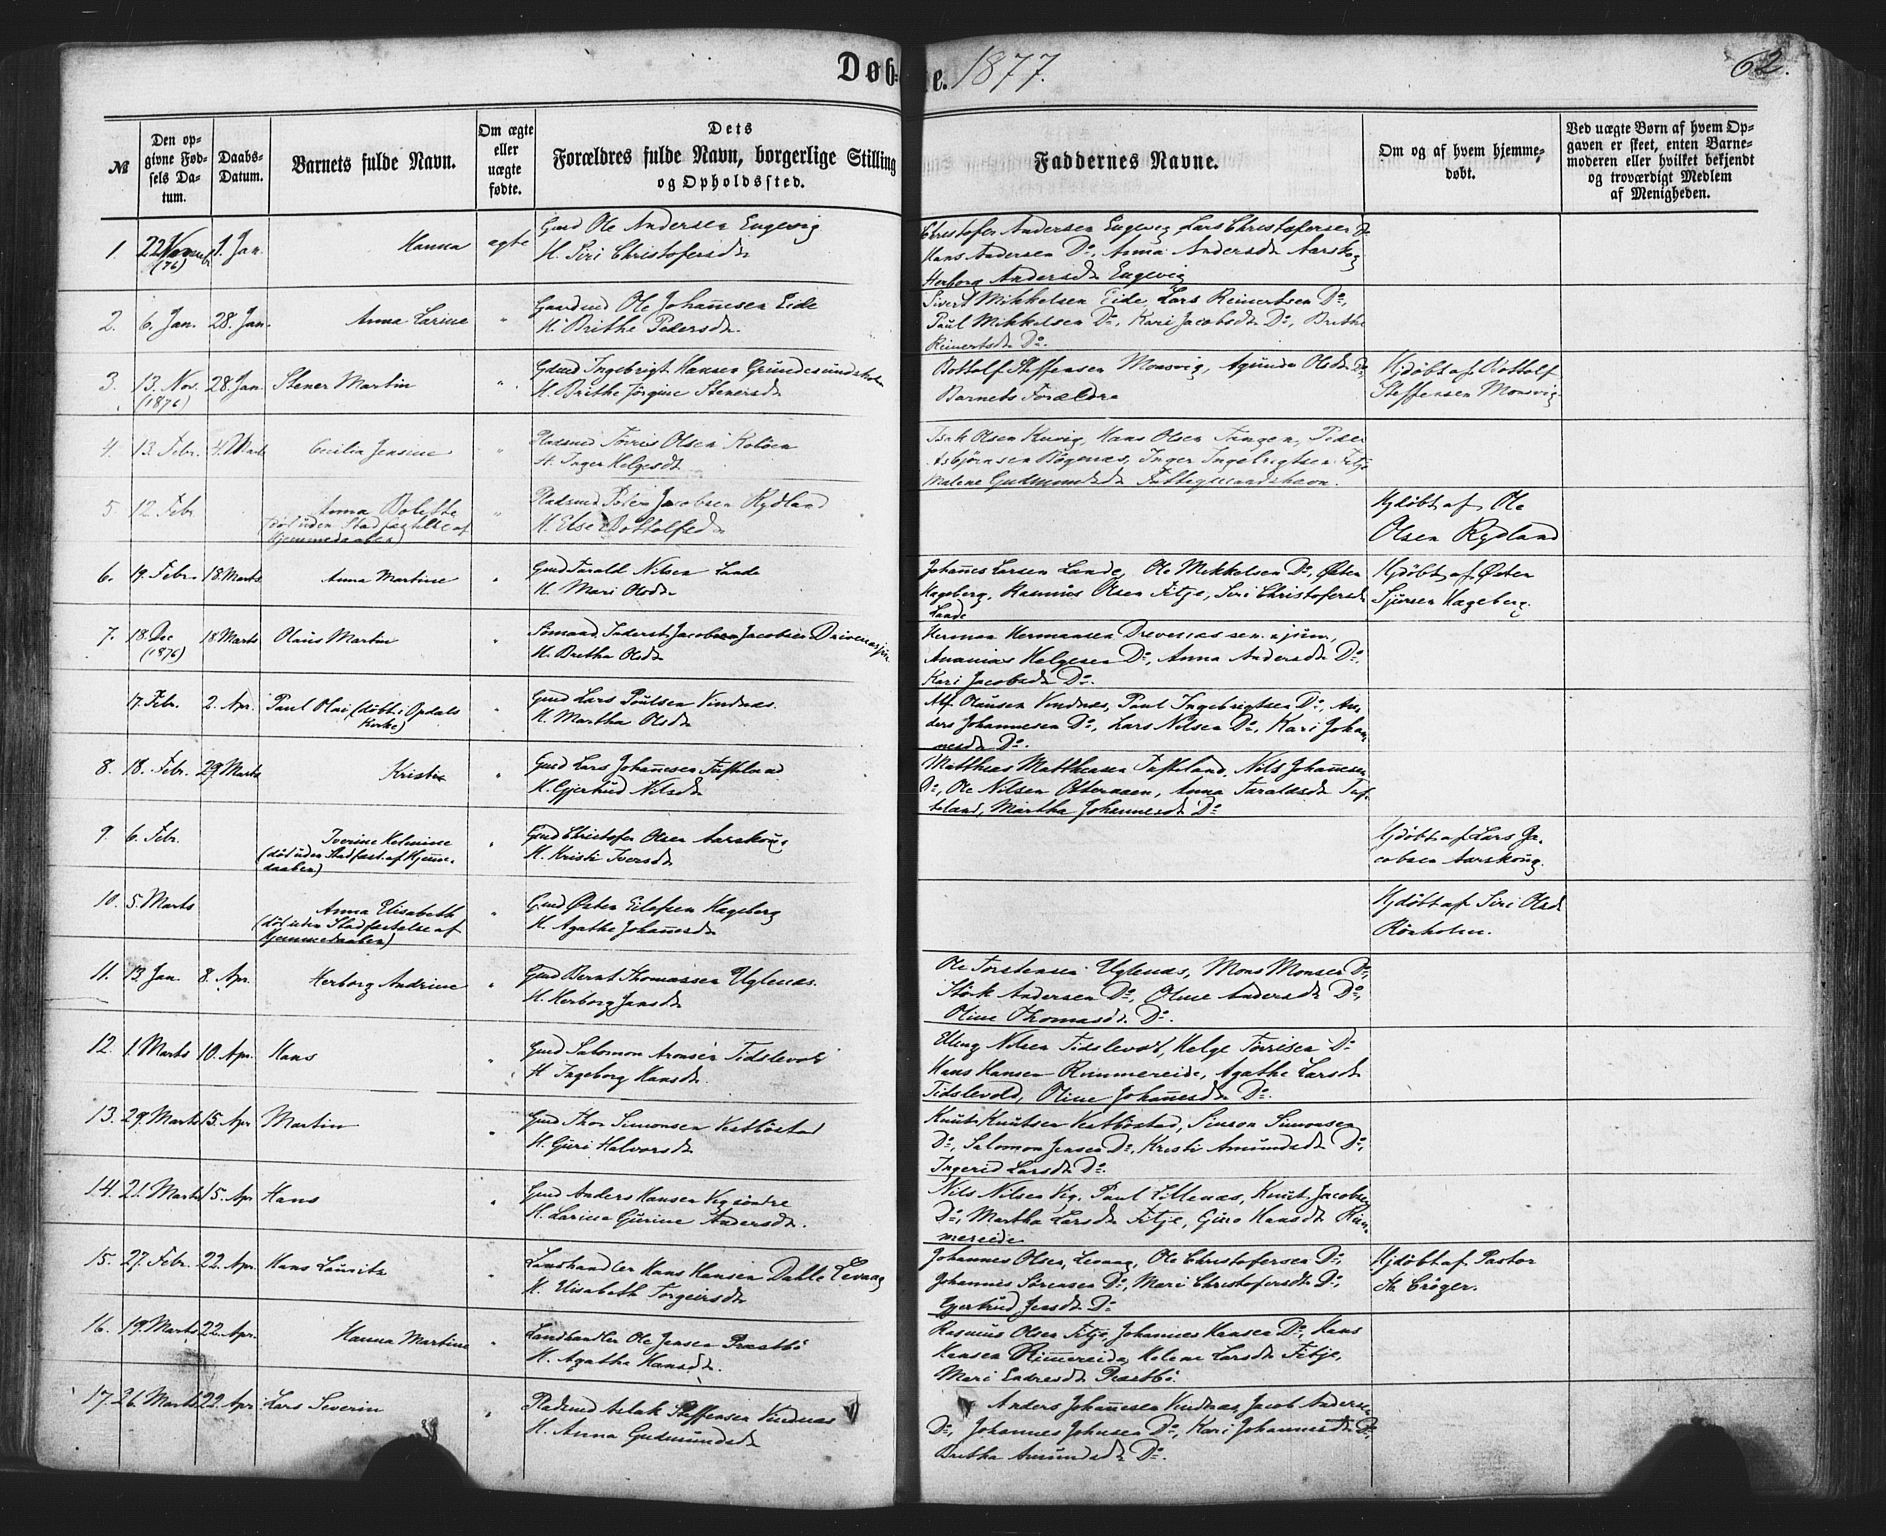 Døb- te. 1877. 62.
№ Den opgivne Fødsels Datum. Daabs-Datum. Barnets fulde Navn. Om ægte eller uægte fødte. Dets Forældres fulde Navn, borgerlige Stilling og Opholdssted. Faddernes Navne. Om og af hvem hjemmedøbt. Ved uægte Børn af hvem Opgaven er skeet, enten Barnemoderen eller hvilket bekjendt og troværdigt Medlem af Menigheden.
1 22 Novemb (76) 1. Jan. Hanna egte Gmd Ole Andersen Engevig
H. Siri Christofersdt
Christofer Andersen Engevig Lars Christofersen Do
Hans Andersen Do, Anna Andersdt Aarskog
Herborg Andersdt Engevig
2. 6. Jan. 28. Jan. Anna Larine " Gaardmd Ole Johannesen Eide
H. Brithe Pedersdt.
Sivert Mikkelsen Eide, Lars Reinertsen Do,
Paul Mikkelsen Do, Kari Jacobsdt Do, Brithe
Reinertsdt Do.
3. 13. Nov. (1876) 28. Jan. Stener Martin " Gdmd Ingebrigt Hansen Grindesundsholm
H. Brithe Jørgine Stenersdt
Bottolf Steffensen Monsvig, Agunda Olsdt Do,
Barnets Forældre
Hjdøbt af Bottolf
Steffensen Monsvig
4. 13. Febr. 4. Marts Cecilia Jensine " Pladsmd Torris Olsen Koløen
H. Inger Helgesdt
Isak Olsen Kuvig, Hans Olsen Tangen, Peder
Asbjørnsen Bøgenæs, Inger Ingebrigtsen Fitje
Malene Gudmundsdt
5. 12. Febr. Anna Bolette
(død uden Stadfæstelse af
Hjemmedaaben)
" Pladsmd Peder Jacobsen Rydland
H. Else Bottolfsdt
Hjdøbt af Ole
Olsen Rydland
6. 19. Febr. 18. Marts Anna Martine " Gmd Tarald Nilsen Lande
H. Mari Olsdt.
Johanes Larsen Lande, Ole Mikkelsen Do, Østen
Hageberg, Rasmus Olsen Fitje, Siri Christofersdt
Lande
Hjdøbt af Østen
Sjursen Hageberg.
7. 18. Dec (1876) 18. Marts Olaus Martin " Sømand Jacob Jacobsen Drivenæs jun
H. Bretha Olsdt
Herman Hermansen Drevenæs sen. & jun.,
Ananias Helgesen Do, Anna Andersdt Do,
Kari Jacobsdt Do.
17. Febr. 2. Apr. Paul Olai (døbt i Opdals
Kirke)
" Gmd Lars Poulsen Vindnæs.
H. Martha Olsdt
Alf Olausen Vindnæs, Paul Ingebrigtsen Do, An-
ders Johannesen Do, Lars Nilsen Do, Kari Johan-
nesdt Do.
8. 18. Febr. 29 Marts Kristi " Gmd Lars Johannesen Tufteland
H. Gjertrud Nilsdt
Matthias Mathiasen Tufteland, Nils Johannesen
Do, Ole Nilsen Otternæs, Anna Taraldsdt Tuf-
teland, Martha Johannesdt Do
9. 6. Febr. Iverine Kelmine
(død uden Stadfæst. af Hjemme-
daaben)
" Gmd Christofer Olsen Aarskoug
H. Kristi Iversdt
Hjdøbt af Lars Ja-
cobsen Aarskoug.
10. 5. Marts Anna Elisabeth
(død uden Stadfæstelse af
Hjemmedaaben)
" Gmd Østen Eilefsen Hageberg
H. Agathe Johannesdt
Hjdøbt af Siri Olsdt
Rørholm.
11. 13. Jan. 8. Apr. Herborg Andrine " Gmd Bernt Thomassen Uglenæs.
H. Herborg Jansdt
Ole Torstensen Uglenæs, Mons Monsen Do,
Størk Andersen Do, Oline Andersdt Do,
Oline Thomasdt. Do.
12. 1. Marts 10. Apr. Hans " Gmd Salomon Aronsen Tidslevold
H. Ingeborg Hansdt.
Elling Nilsen Tidslevold, Helge Torrisen Do
Hans Hansen Rimmereide, Agathe Larsdt
Tidslevold, Oline Johannesdt Do.
13. 29. Marts 15. Apr Martin " Gmd Thor Simonsen Vestbøstad
H. Guri Halvorsdt
Knut Knutsen Vestbøstad, Simon Simonsen
Do, Salomon Jensen Do, Kristi Amundsdt Do,
Ingerid Larsdt Do.
14. 21. Marts 15. Apr Hans " Gmd Anders Hansen Vig søndre
H. Larina Gurine Andersdt.
Nils Nilsen Vig, Paul Lillenæs, Knut Jacobsen
Do, Martha Larsdt Fitje, Guro Hansdt Rim-
mereide
15. 27. Febr. 22. Apr. Hans Lauritz " Landhandler Hans Hansen Dahle Levaag
H. Elisabeth Torgeirsdt
Johannes Olsen Levaag, Ole Christofersen Do,
Johannes Sørensen Do, Mari Christofersdt Do,
Gjertrud Jensdt Do
Hjdøbt af Pastor
St. Crøger.
16. 19. Marts 22. Apr. Hanna Martine " Landhandler Ole Jensen Præstbø
H. Agatha Hansdt.
Rasmus Olsen Fitje, Johannes Hansen Do, Hans
Hansen Rimmereide, Helene Larsdt Fitje,
Mari Endresdt Præstbø.
17. 26. Marts 22. Apr. Lars Severin " Pladsmd Aslak Steffensen Vindnæs
H. Anna Gudmundsdt
Anders Johannesen Vindnæs, Jacob Andersen
Do, Johannes Johnsen Do, Kari Johannesdt Do,
Bretha Amundsdt Do.